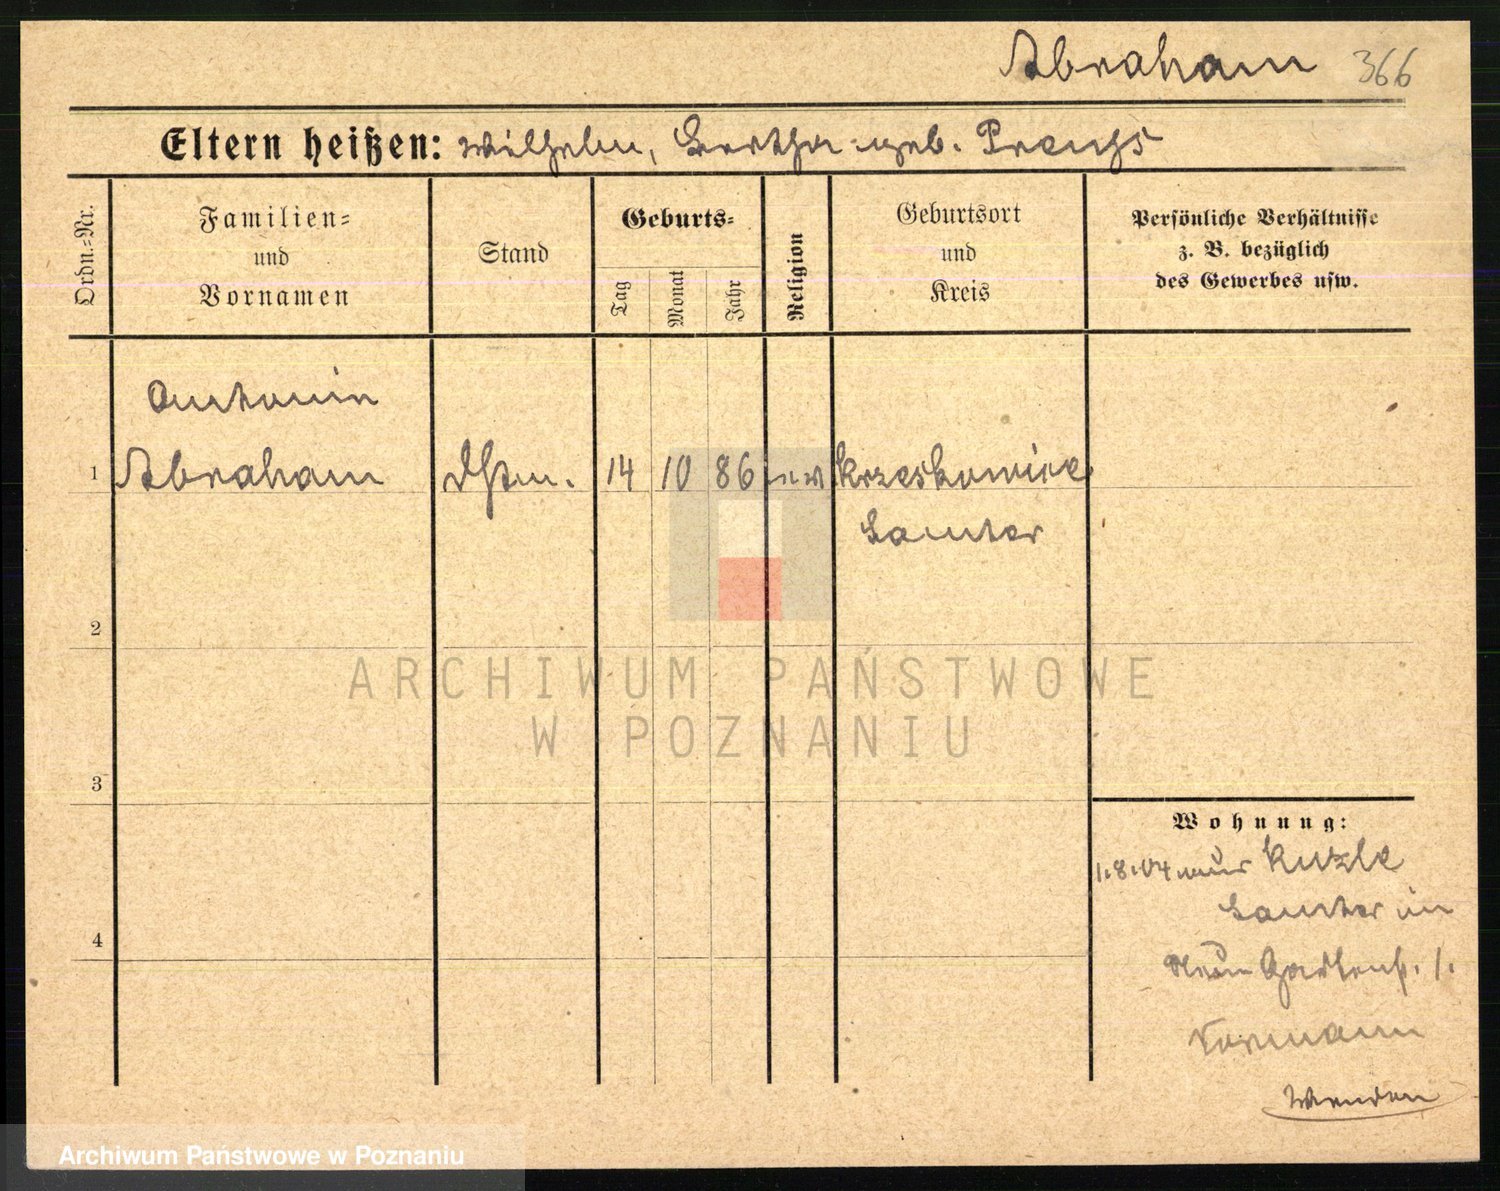 Abraham 366
Eltern heißen: Wilhelm, Bertha geb. Preuhs
Ordn.-Nr.
Familien-
und
Vornamen
Stand
Geburts-
Tag
Monat
Jahr
Religion
Geburtsort
und
Kreis
Persönliche Verhältnisse
z. B. bezüglich
des Gewerbes usw.
Antonin
1 Abraham Dstm. 14 10 86 ev
Samter
2
3
4
Wohnung:
1.8.04 nur
Samter in
Gartenstr. 1.
Normann
Wenden
ARCHIWUM PAŃSTWOWE
W POZNANIU
Archiwum Państwowe w Poznaniu